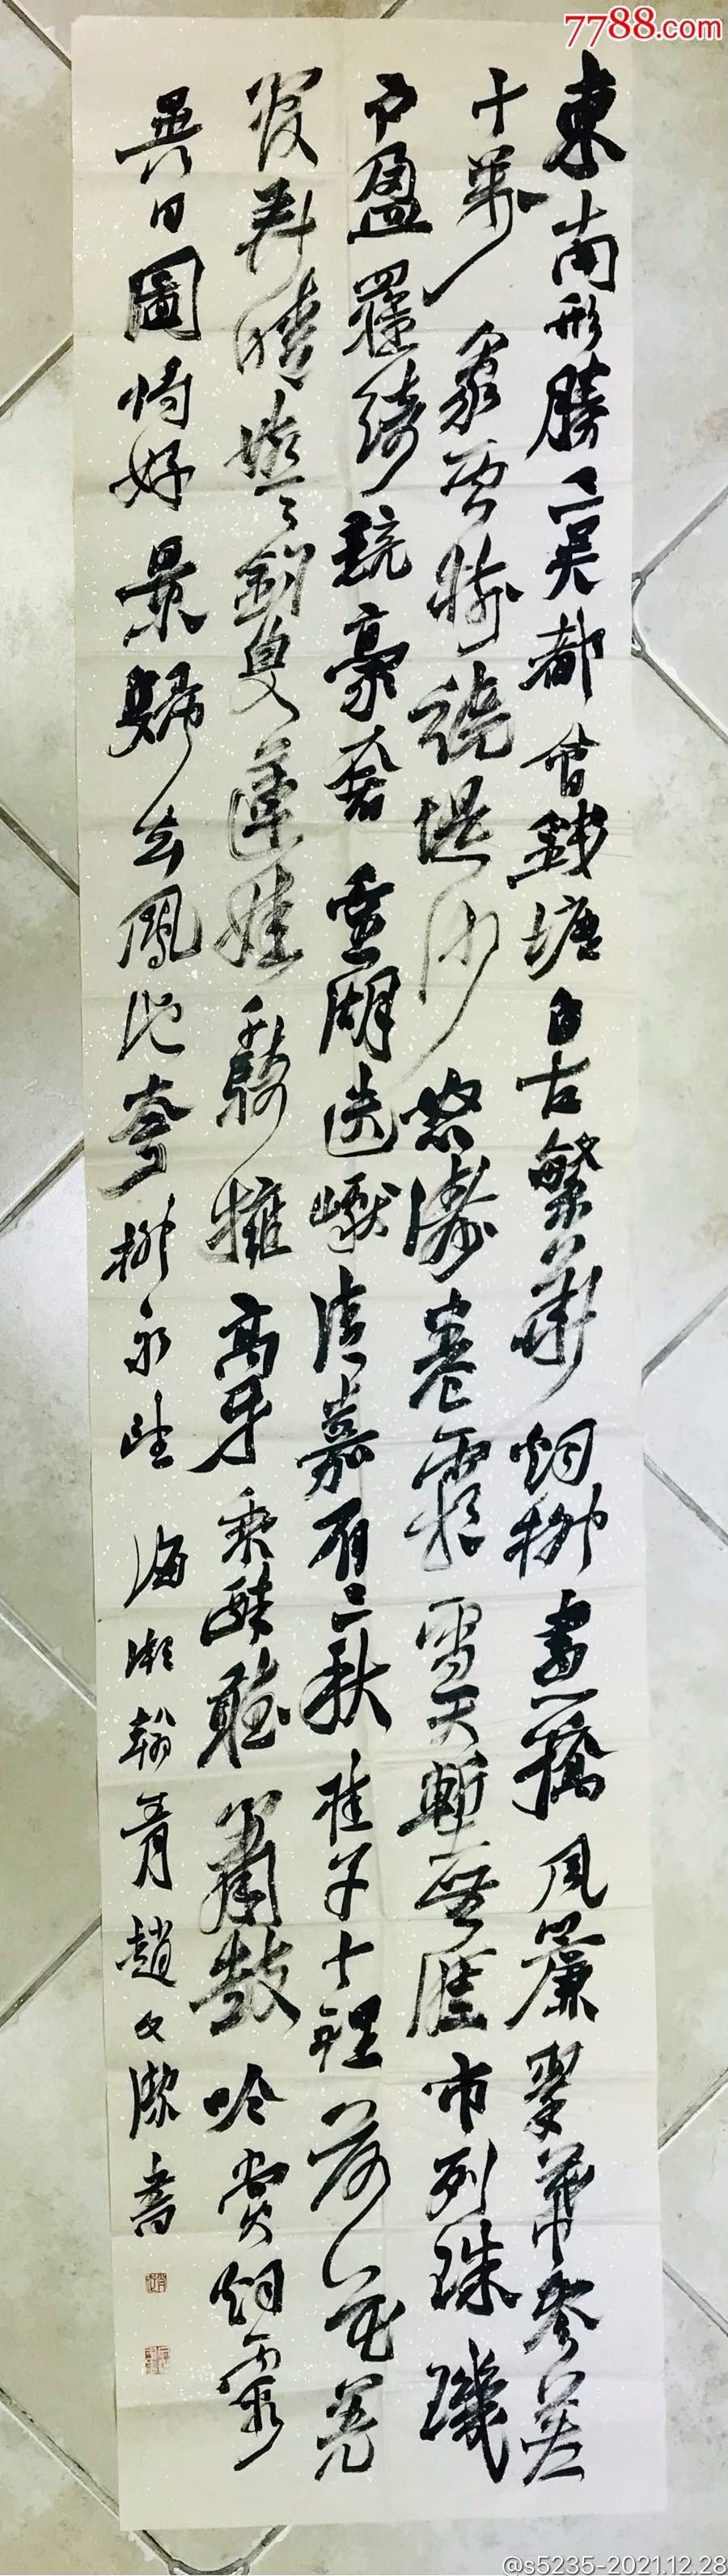 7788.com
東南形勝三吳都會錢塘自古繁華烟柳畫橋風簾翠幕參差
十萬人家雲樹繞堤沙怒濤卷霜雪天塹無涯市列珠璣
戶盈羅綺競豪奢重湖迭巘清嘉有三秋桂子十里荷花羌
管弄晴嬉々釣叟蓮娃千騎擁高牙乘醉聽簫鼓吟賞烟霞
異日圖將好景歸去鳳池夸柳永望海潮翰青趙文潔書
@s5235-2021.12.28